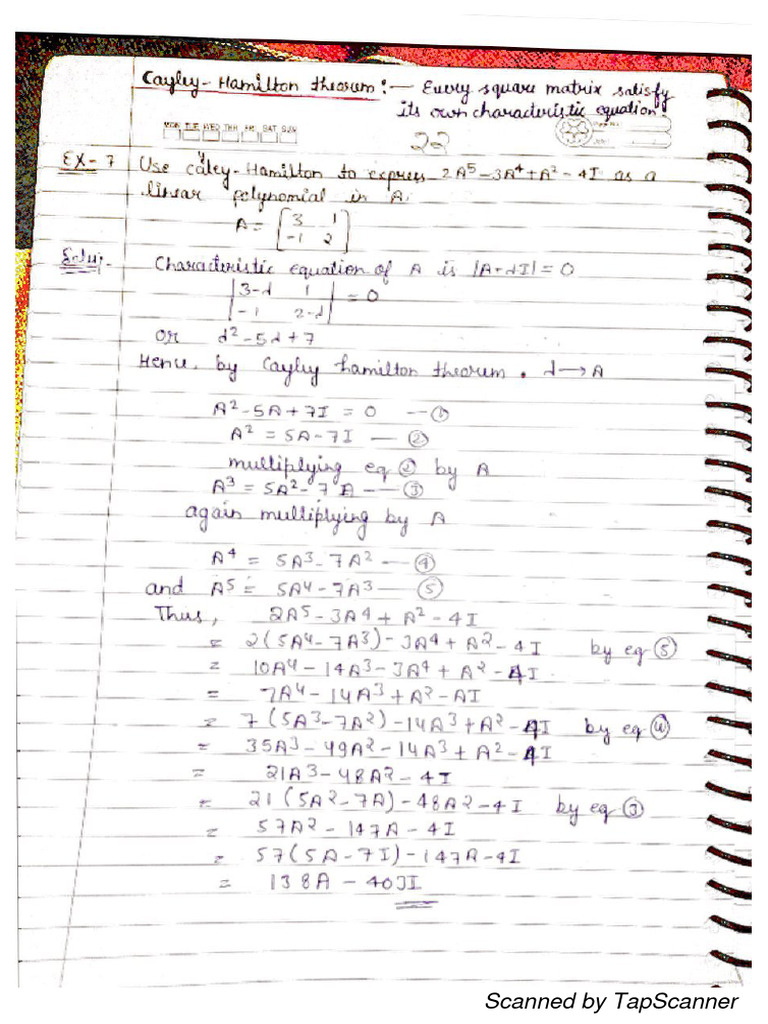 Cayley-Hamilton theorem:- Every square matrix satisfy
its own characteristic equation.
MON TUE WED THU FRI SAT SUN
22
EX-7 Use caley-Hamilton to express 2A⁵-3A⁴+A²-4I as a
linear polynomial in A.
A = [3 1
-1 2]
Soln:- Characteristic equation of A is |A-λI|=0
|3-λ 1
-1 2-λ| = 0
or λ²-5λ+7
Hence, by Cayley hamilton theorem. λ→A
A²-5A+7I = 0 —①
A² = 5A-7I —②
multiplying eq ② by A
A³ = 5A²-7A —③
again multiplying by A
A⁴ = 5A³-7A² —④
and A⁵ = 5A⁴-7A³ —⑤
Thus, 2A⁵-3A⁴+A²-4I
= 2(5A⁴-7A³)-3A⁴+A²-4I by eq ⑤
= 10A⁴-14A³-3A⁴+A²-4I
= 7A⁴-14A³+A²-AI
= 7(5A³-7A²)-14A³+A²-4I by eq ④
= 35A³-49A²-14A³+A²-4I
= 21A³-48A²-4I
= 21(5A²-7A)-48A²-4I by eq ③
= 57A²-147A-4I
= 57(5A-7I)-147A-4I
= 138A-403I
Scanned by TapScanner